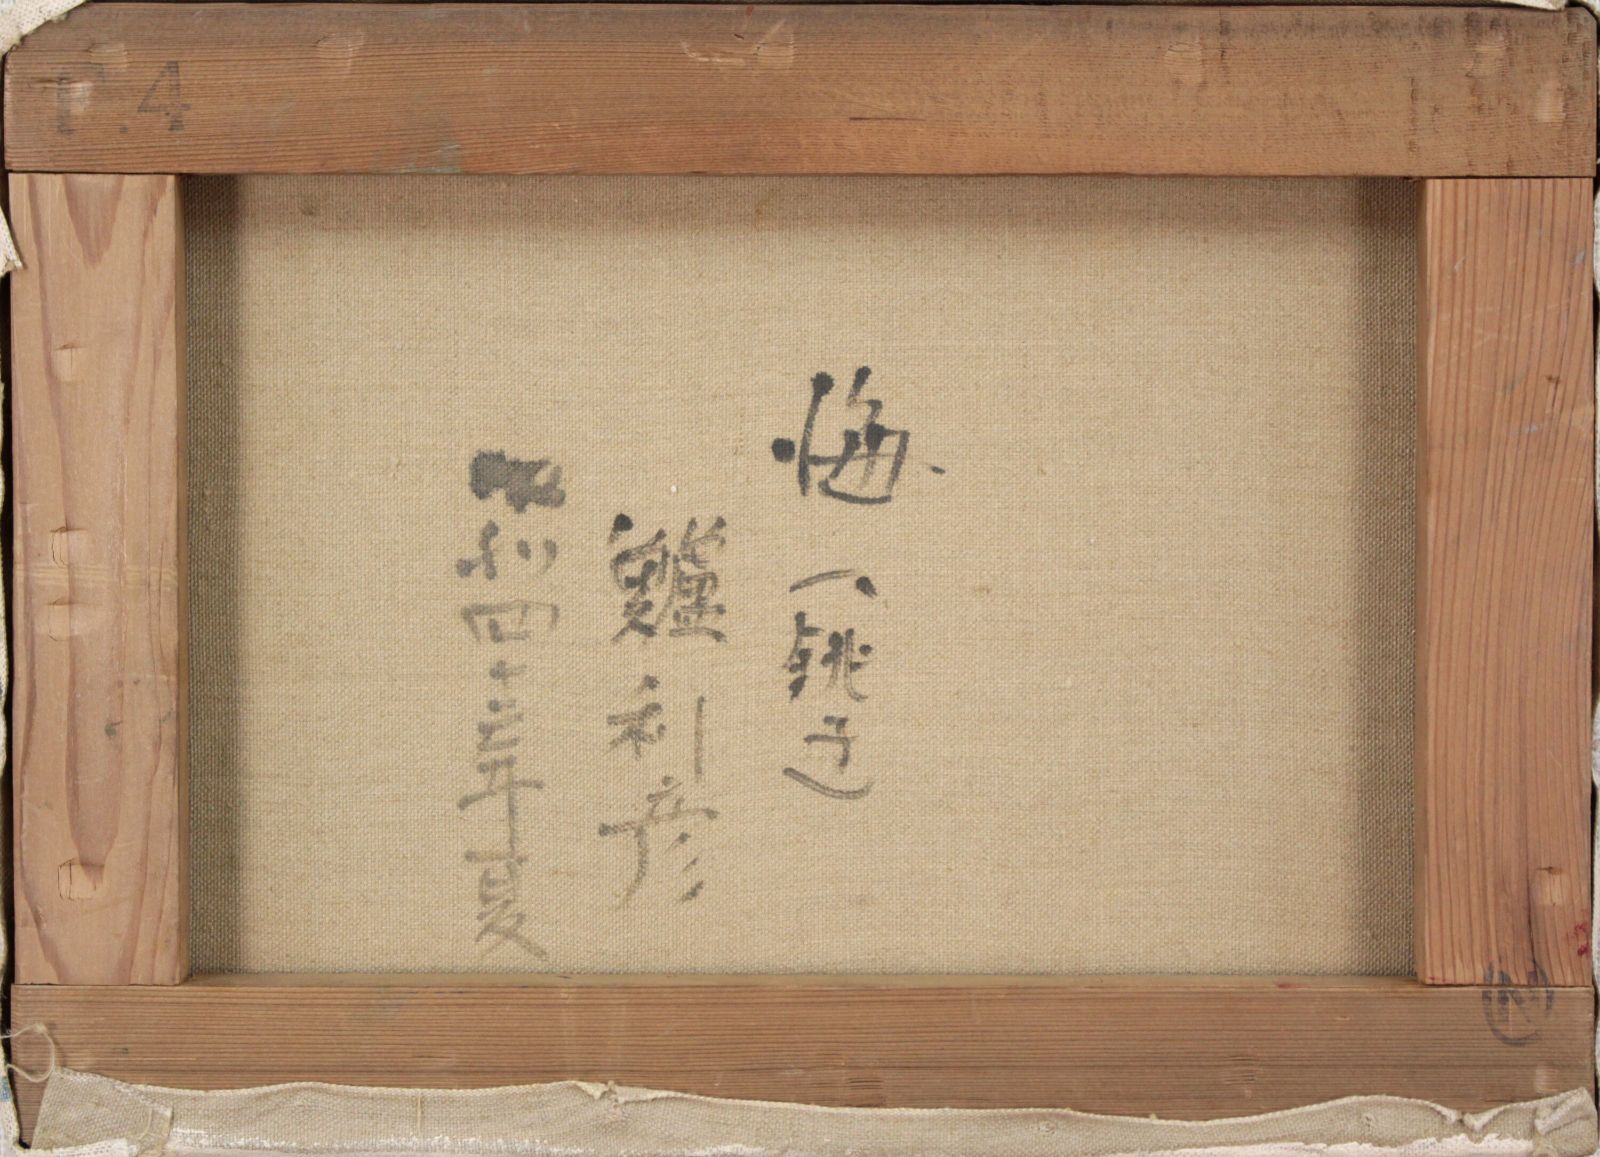 P.4
海
(銚子)
鱸利彦
昭和四十三年夏